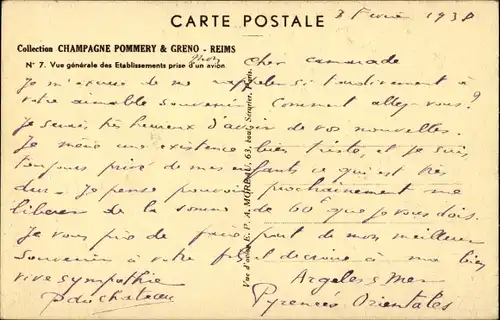 CARTE POSTALE
Février 193
Collection CHAMPAGNE POMMERY & GRENO - REIMS
N° 7. Vue générale des Etablissements prise d'un avion
Mon cher camarade
Je m'excuse de me rappeler si tardivement à
votre aimable souvenir. Comment allez vous?
Je serais très heureux d'avoir de vos nouvelles.
Je mène une existence bien triste, et je suis
toujours privé de mes enfants ce qui est très
dur. Je pense pouvoir prochainement me
liberer de la somme de 60 que je vous dois.
Je vous prie de faire part de mon meilleur
souvenir à votre et de croire à ma bien
vive sympathie
Argelès s Mer
Pyrénées Orientales
Vue d'avion E. P. A. MOREAU, 63, boul. Sérurier, Paris.